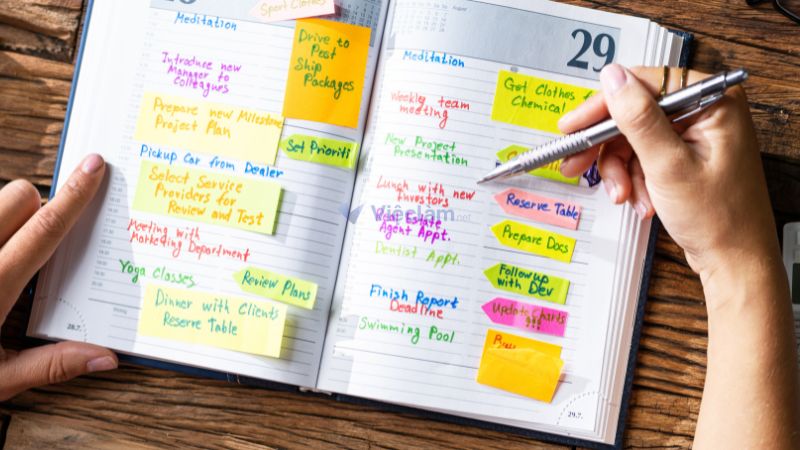 Sport Clothes
Meditation
Drive to
Post
Ship
Packages
Introduce new
Manager to
Colleagues
Prepare new Milestone
Project Plan
Set Prioriti
Pickup Car from Dealer
Select Service
Providers for
Review and Test
Meeting with
Marketing Department
Yoga Classes
Review Plans
Dinner with Clients
Reserve Table
28.7.
August
29
Meditation
Get Clothes for
Chemical
Weekly team
meeting
New Project
Presentation
Lunch with new
Investors
Reserve Table
Việclàm.net
Real Estate
Agent Appt.
Prepare Docs
Dentist Appt.
Followup
with Dev
Finish Report
Deadline
Update Charts
!!!
Swimming Pool
29.7.